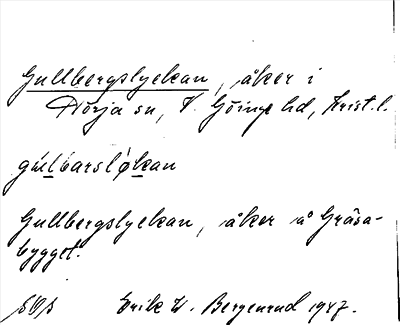 Gullbergslyckan, åker i
Nörja sn, V. Göinge hd, Krist. l.
gulbarsløkan
Gullbergslyckan, åker å Gräsa-
bygget.
Erik W. Bergenrud 1947.